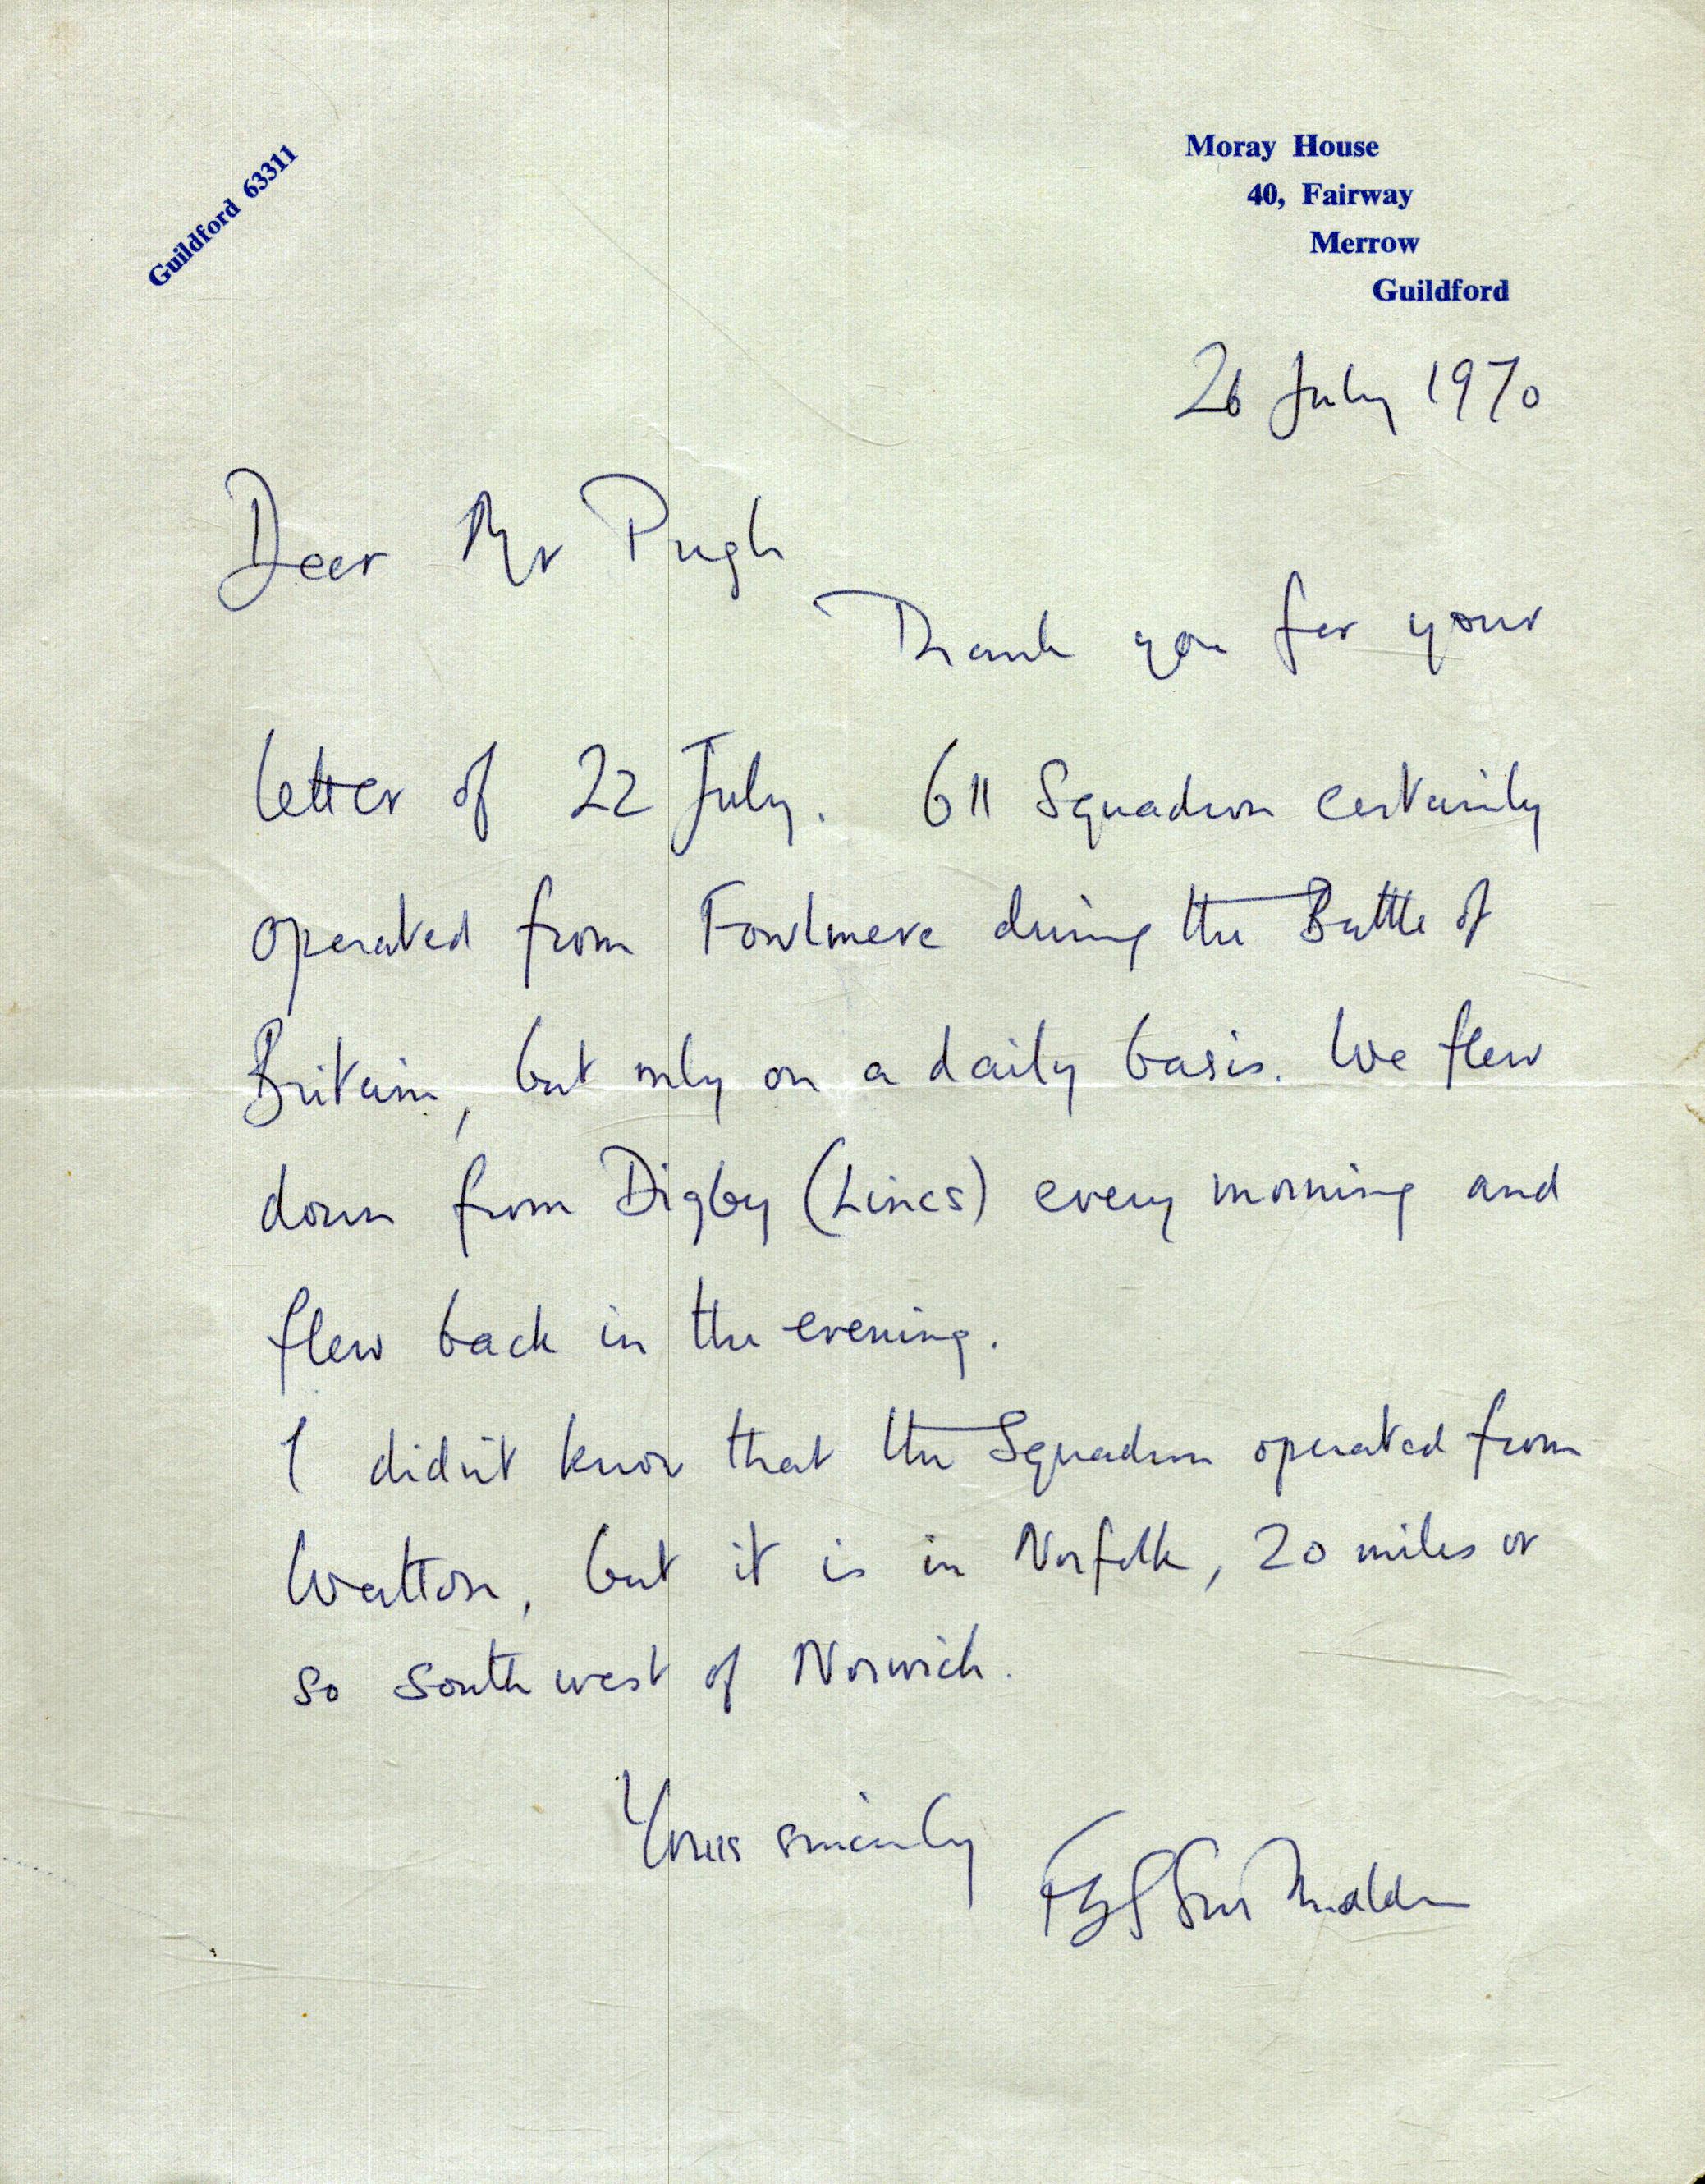 Guildford 63311
Moray House
40, Fairway
Merrow
Guildford
26 July 1970
Dear Mr Pugh
Thank you for your
letter of 22 July. 611 Squadron certainly
operated from Fowlmere during the Battle of
Britain, but only on a daily basis. We flew
down from Digby (Lincs) every morning and
flew back in the evening.
I didn't know that the Squadron operated from
Watton, but it is in Norfolk, 20 miles or
so south west of Norwich.
Yours sincerely